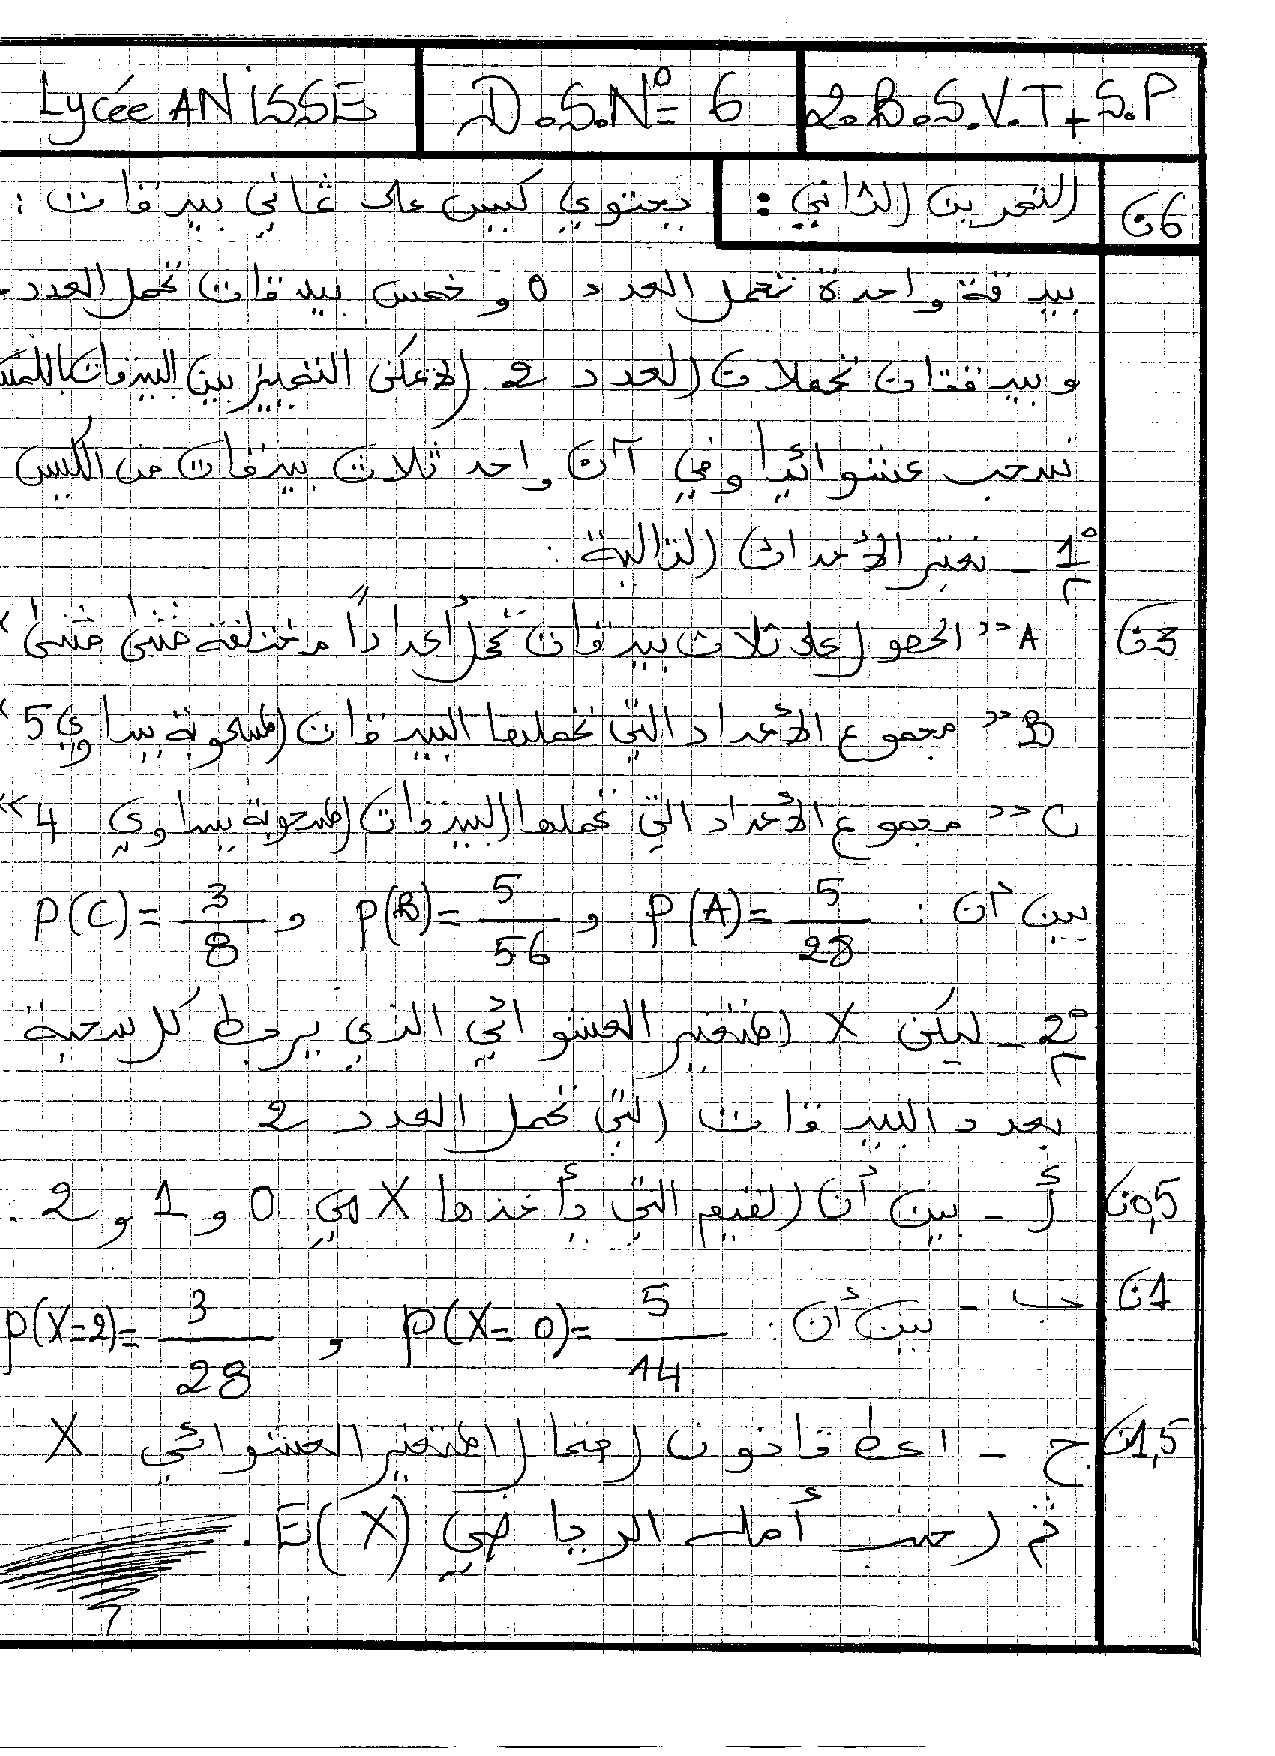 Lycée ANISSE D.S.N°= 6 2.B.S.V.T+S.P
6ن التمرين الثاني : يحتوي كيس على ثماني بيدقات :
بيدقة واحدة تحمل العدد 0 و خمس بيدقات تحمل العدد
و بيدقتان تحملان العدد 2 (لا يمكن التمييز بين البيدقات باللمس
نسحب عشوائيا وفي آن واحد ثلاث بيدقات من الكيس
1° - نعتبر الأحداث التالية :
3ن A "الحصول على ثلاث بيدقات تحمل أعداداً مختلفة مثنى مثنى"
B "مجموع الأعداد التي تحملها البيدقات المسحوبة يساوي 5"
C "مجموع الأعداد التي تحملها البيدقات المسحوبة يساوي 4"
بين أن : P(A)= 5/28 و P(B)= 5/56 و P(C)= 3/8
2° - ليكن X المتغير العشوائي الذي يربط كل سحبة
بعدد البيدقات التي تحمل العدد 2
0,5ن أ - بين أن القيم التي يأخذها X هي 0 و 1 و 2 .
1ن ب - بين أن : P(X=0)= 5/14 , P(X=2)= 3/28
1,5ن ج - اعط قانون احتمال المتغير العشوائي X
ثم احسب أمله الرياضي E(X) .